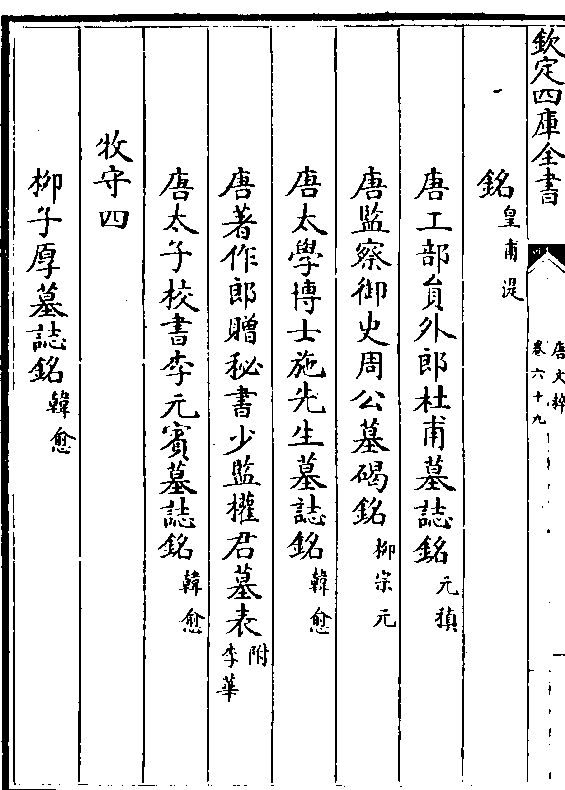 欽定四庫全書
唐文粹
卷六十九
銘皇甫湜
唐工部員外郎杜甫墓誌銘元稹
唐監察御史周公墓碣銘柳宗元
唐太學博士施先生墓誌銘韓愈
唐著作郎贈秘書少監權君墓表附李華
唐太子校書李元賓墓誌銘韓愈
牧守四
柳子厚墓誌銘韓愈